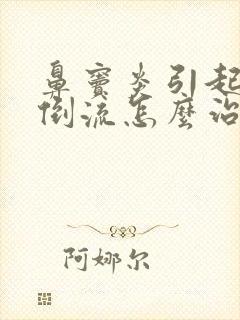 鼻窦炎引起
倒流怎麼治
阿娜尔